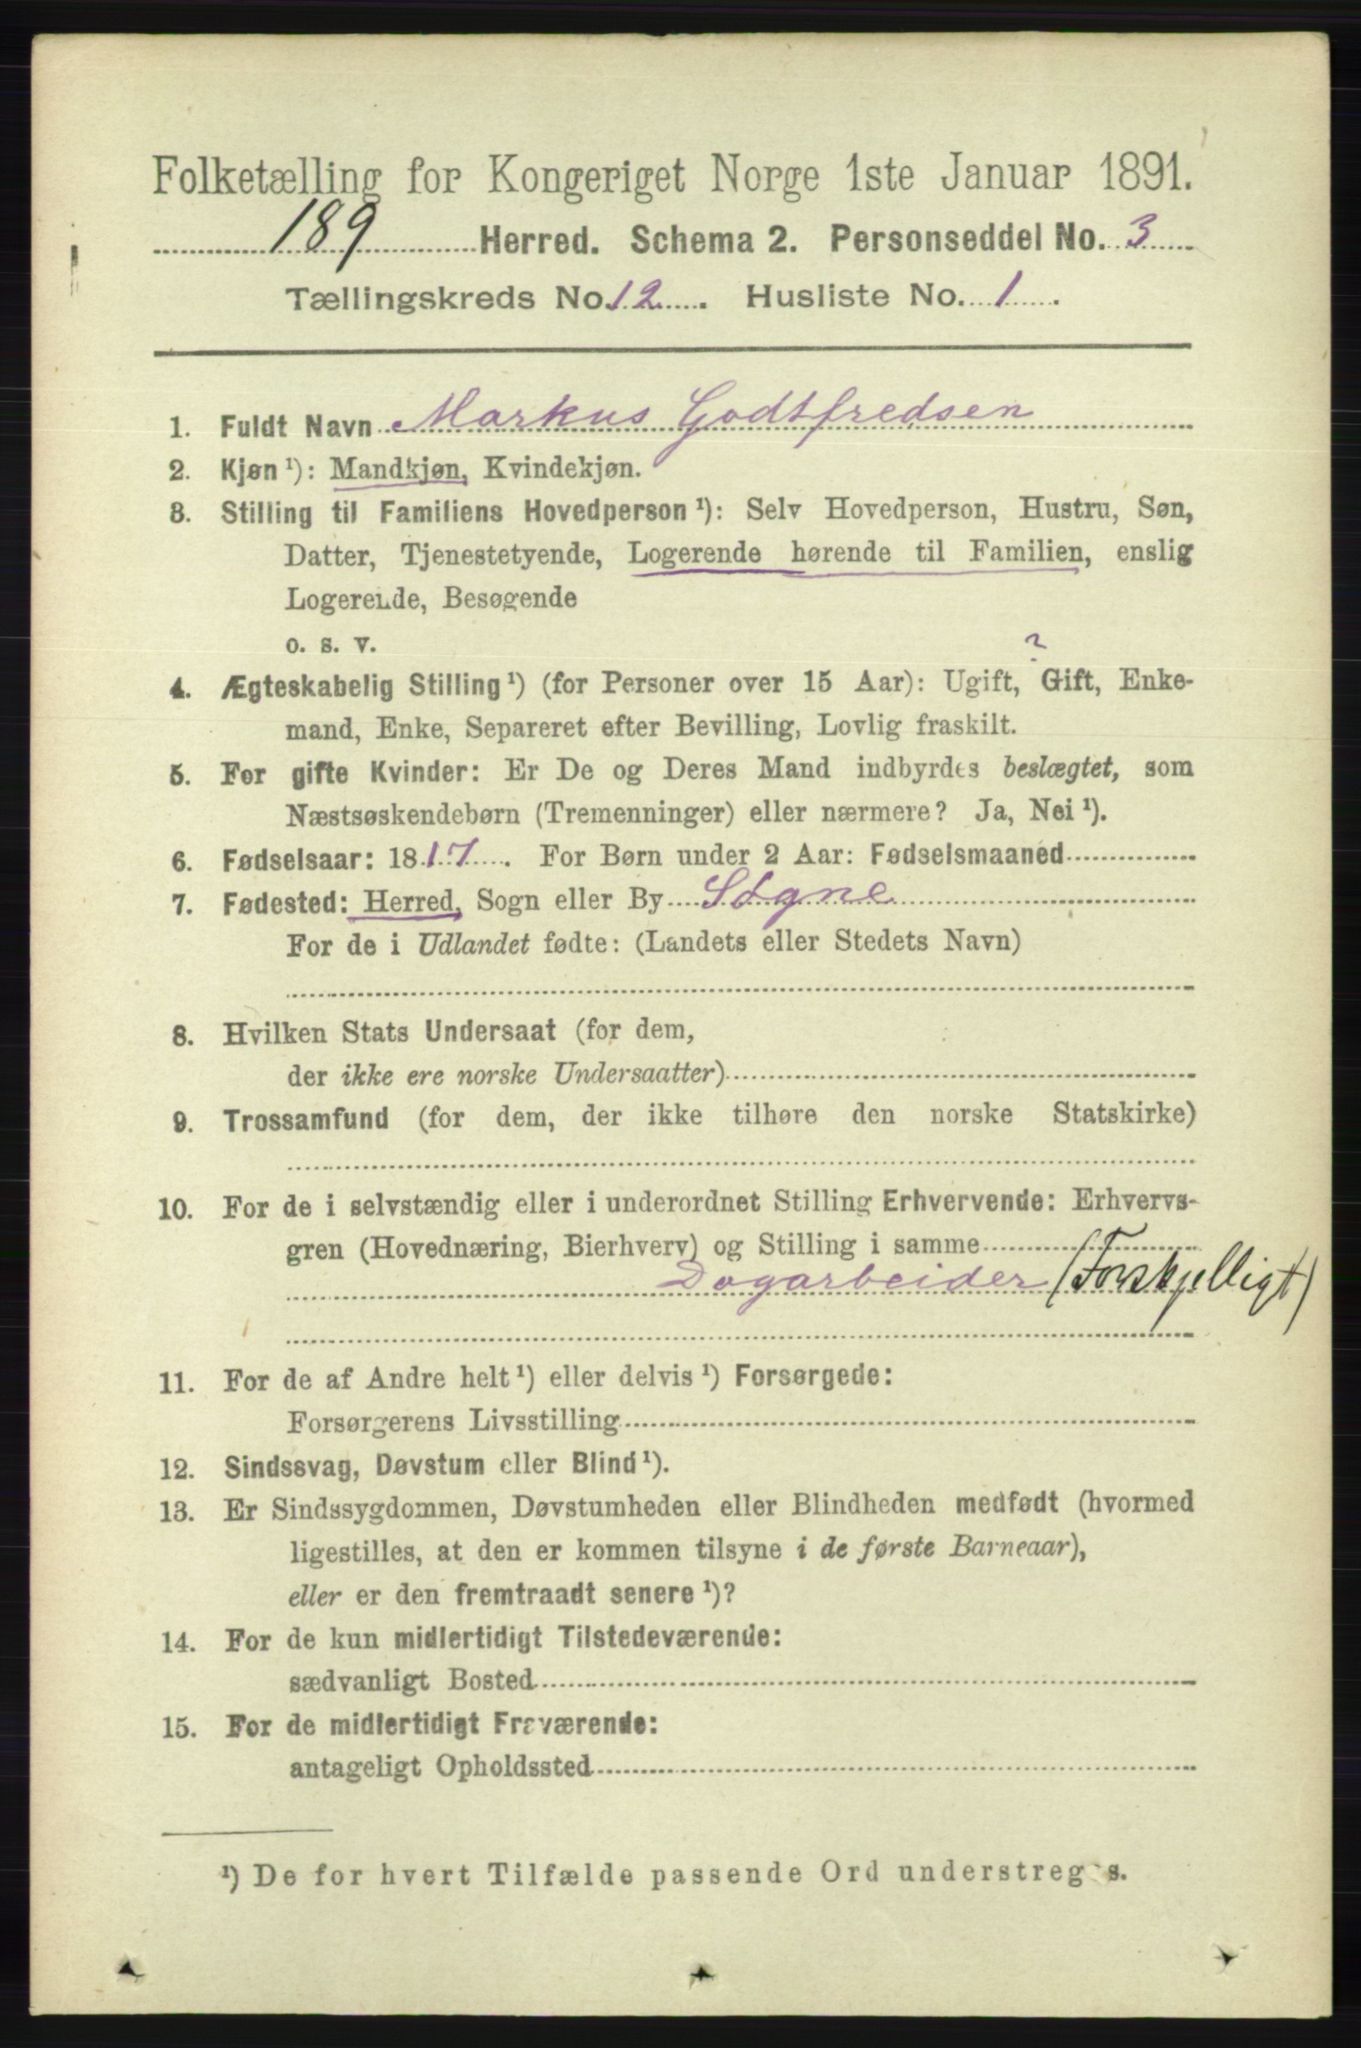 Folketælling for Kongeriget Norge 1ste Januar 1891.
189 Herred. Schema 2. Personseddel No. 3
Tællingskreds No. 12. Husliste No. 1.
1. Fuldt Navn Markus Godtfredsen
2. Kjøn ¹): Mandkjøn, Kvindekjøn.
3. Stilling til Familiens Hovedperson ¹): Selv Hovedperson, Hustru, Søn,
Datter, Tjenestetyende, Logerende hørende til Familien, enslig
Logerende, Besøgende
o. s. v.
?
4. Ægteskabelig Stilling ¹) (for Personer over 15 Aar): Ugift, Gift, Enke-
mand, Enke, Separeret efter Bevilling, Lovlig fraskilt.
5. For gifte Kvinder: Er De og Deres Mand indbyrdes beslægtet, som
Næstsøskendebørn (Tremenninger) eller nærmere? Ja, Nei ¹).
6. Fødselsaar: 1817. For Børn under 2 Aar: Fødselsmaaned
7. Fødested: Herred, Sogn eller By Søgne
For de i Udlandet fødte: (Landets eller Stedets Navn)
8. Hvilken Stats Undersaat (for dem,
der ikke ere norske Undersaatter)
9. Trossamfund (for dem, der ikke tilhøre den norske Statskirke)
10. For de i selvstændig eller i underordnet Stilling Erhvervende: Erhvervs-
gren (Hovednæring, Bierhverv) og Stilling i samme
Dagarbeider (Forskjelligt)
11. For de af Andre helt ¹) eller delvis ¹) Forsørgede:
Forsørgerens Livsstilling
12. Sindssvag, Døvstum eller Blind ¹).
13. Er Sindssygdommen, Døvstumheden eller Blindheden medfødt (hvormed
ligestilles, at den er kommen tilsyne i de første Barneaar),
eller er den fremtraadt senere ¹)?
14. For de kun midlertidigt Tilstedeværende:
sædvanligt Bosted
15. For de midlertidigt Fraværende:
antageligt Opholdssted
¹) De for hvert Tilfælde passende Ord understreges.